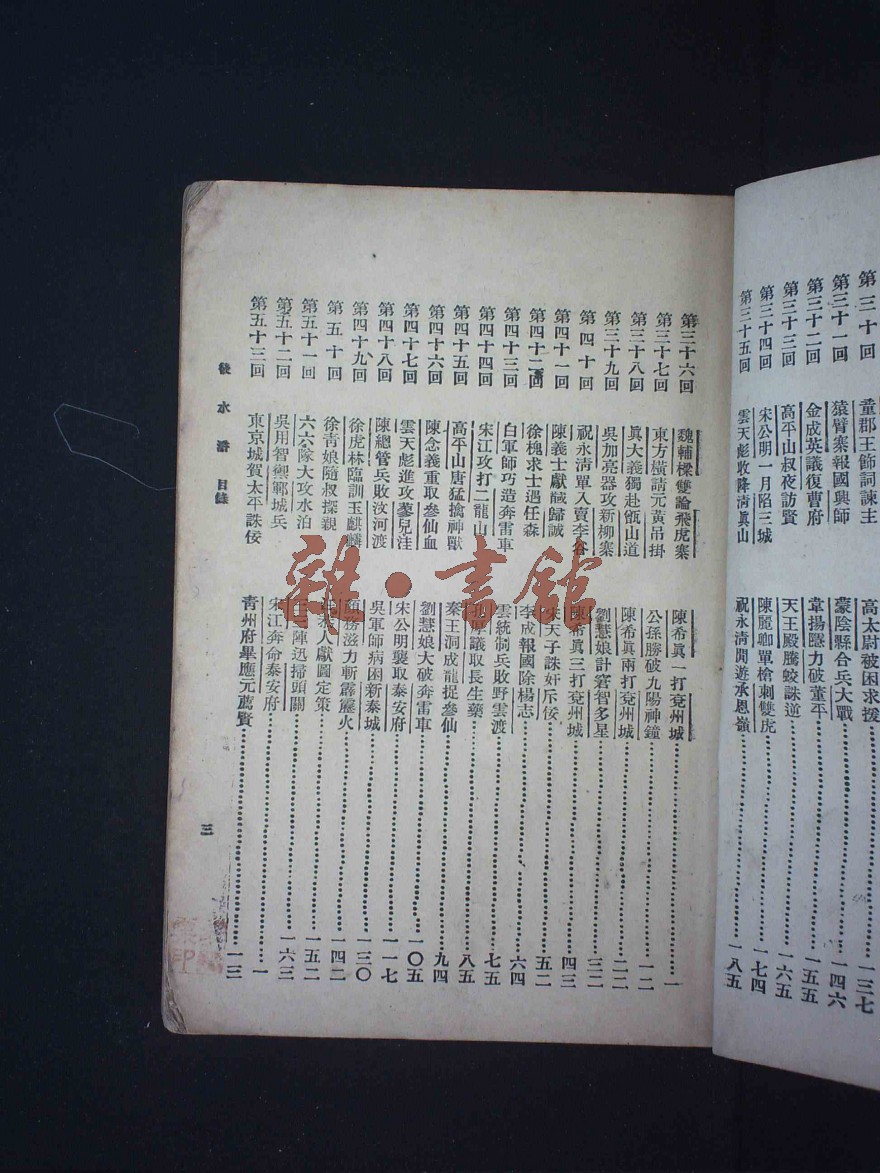 第三十回　童郡王飾詞諫主　高太尉被困求援……一三七
第三十一回　猿臂寨報國興師　蒙陰縣合兵大戰……一四六
第三十二回　金成英議復曹府　韋揚隱力破董平……一五五
第三十三回　高平山叔夜訪賢　天王殿騰蛟誅逆……一六五
第三十四回　宋公明一月陷三城　陳麗卿單槍刺雙虎……一七四
第三十五回　雲天彪收降清眞山　祝永清閒遊承恩嶺……一八五
第三十六回　魏輔樑雙論飛虎寨　陳希眞一打兗州城……一
第三十七回　東方橫請元黃吊掛　公孫勝破九陽神鐘……一二
第三十八回　眞大義獨赴甑山道　陳希眞兩打兗州城……二二
第三十九回　吳加亮器攻新柳寨　劉慧娘計窘智多星……三二
第四十回　祝永清單入賣李谷　陳希眞三打兗州城……四三
第四十一回　陳義士獻馘歸誠　宋天子誅奸斥佞……五二
第四十二回　徐槐求士遇任森　李成報國除楊志……六四
第四十三回　白軍師巧造奔雷車　雲統制兵敗野雲渡……七五
第四十四回　宋江攻打二龍山　孔厚議取長生藥……八五
第四十五回　高平山唐猛擒神獸　秦王洞成龍捉參仙……九四
第四十六回　陳念義重取參仙血　劉慧娘大破奔雷車……一〇五
第四十七回　雲天彪進攻蓼兒洼　宋公明襲取泰安府……一一七
第四十八回　陳總管兵敗汶河渡　吳軍師病困新泰城……一三〇
第四十九回　徐虎林臨訓玉麒麟　顏務滋力斬霹靂火……一四二
第五十回　徐青娘隨叔探親　人獻圖定策……一五二
第五十一回　六六隊大攻水泊　三三陣迅掃頭關……一六三
第五十二回　吳用智禦鄆城兵　宋江奔命泰安府……一
第五十三回　東京城賀太平誅佞　青州府畢應元薦賢……一三
後水滸　目錄
三
雜·書館